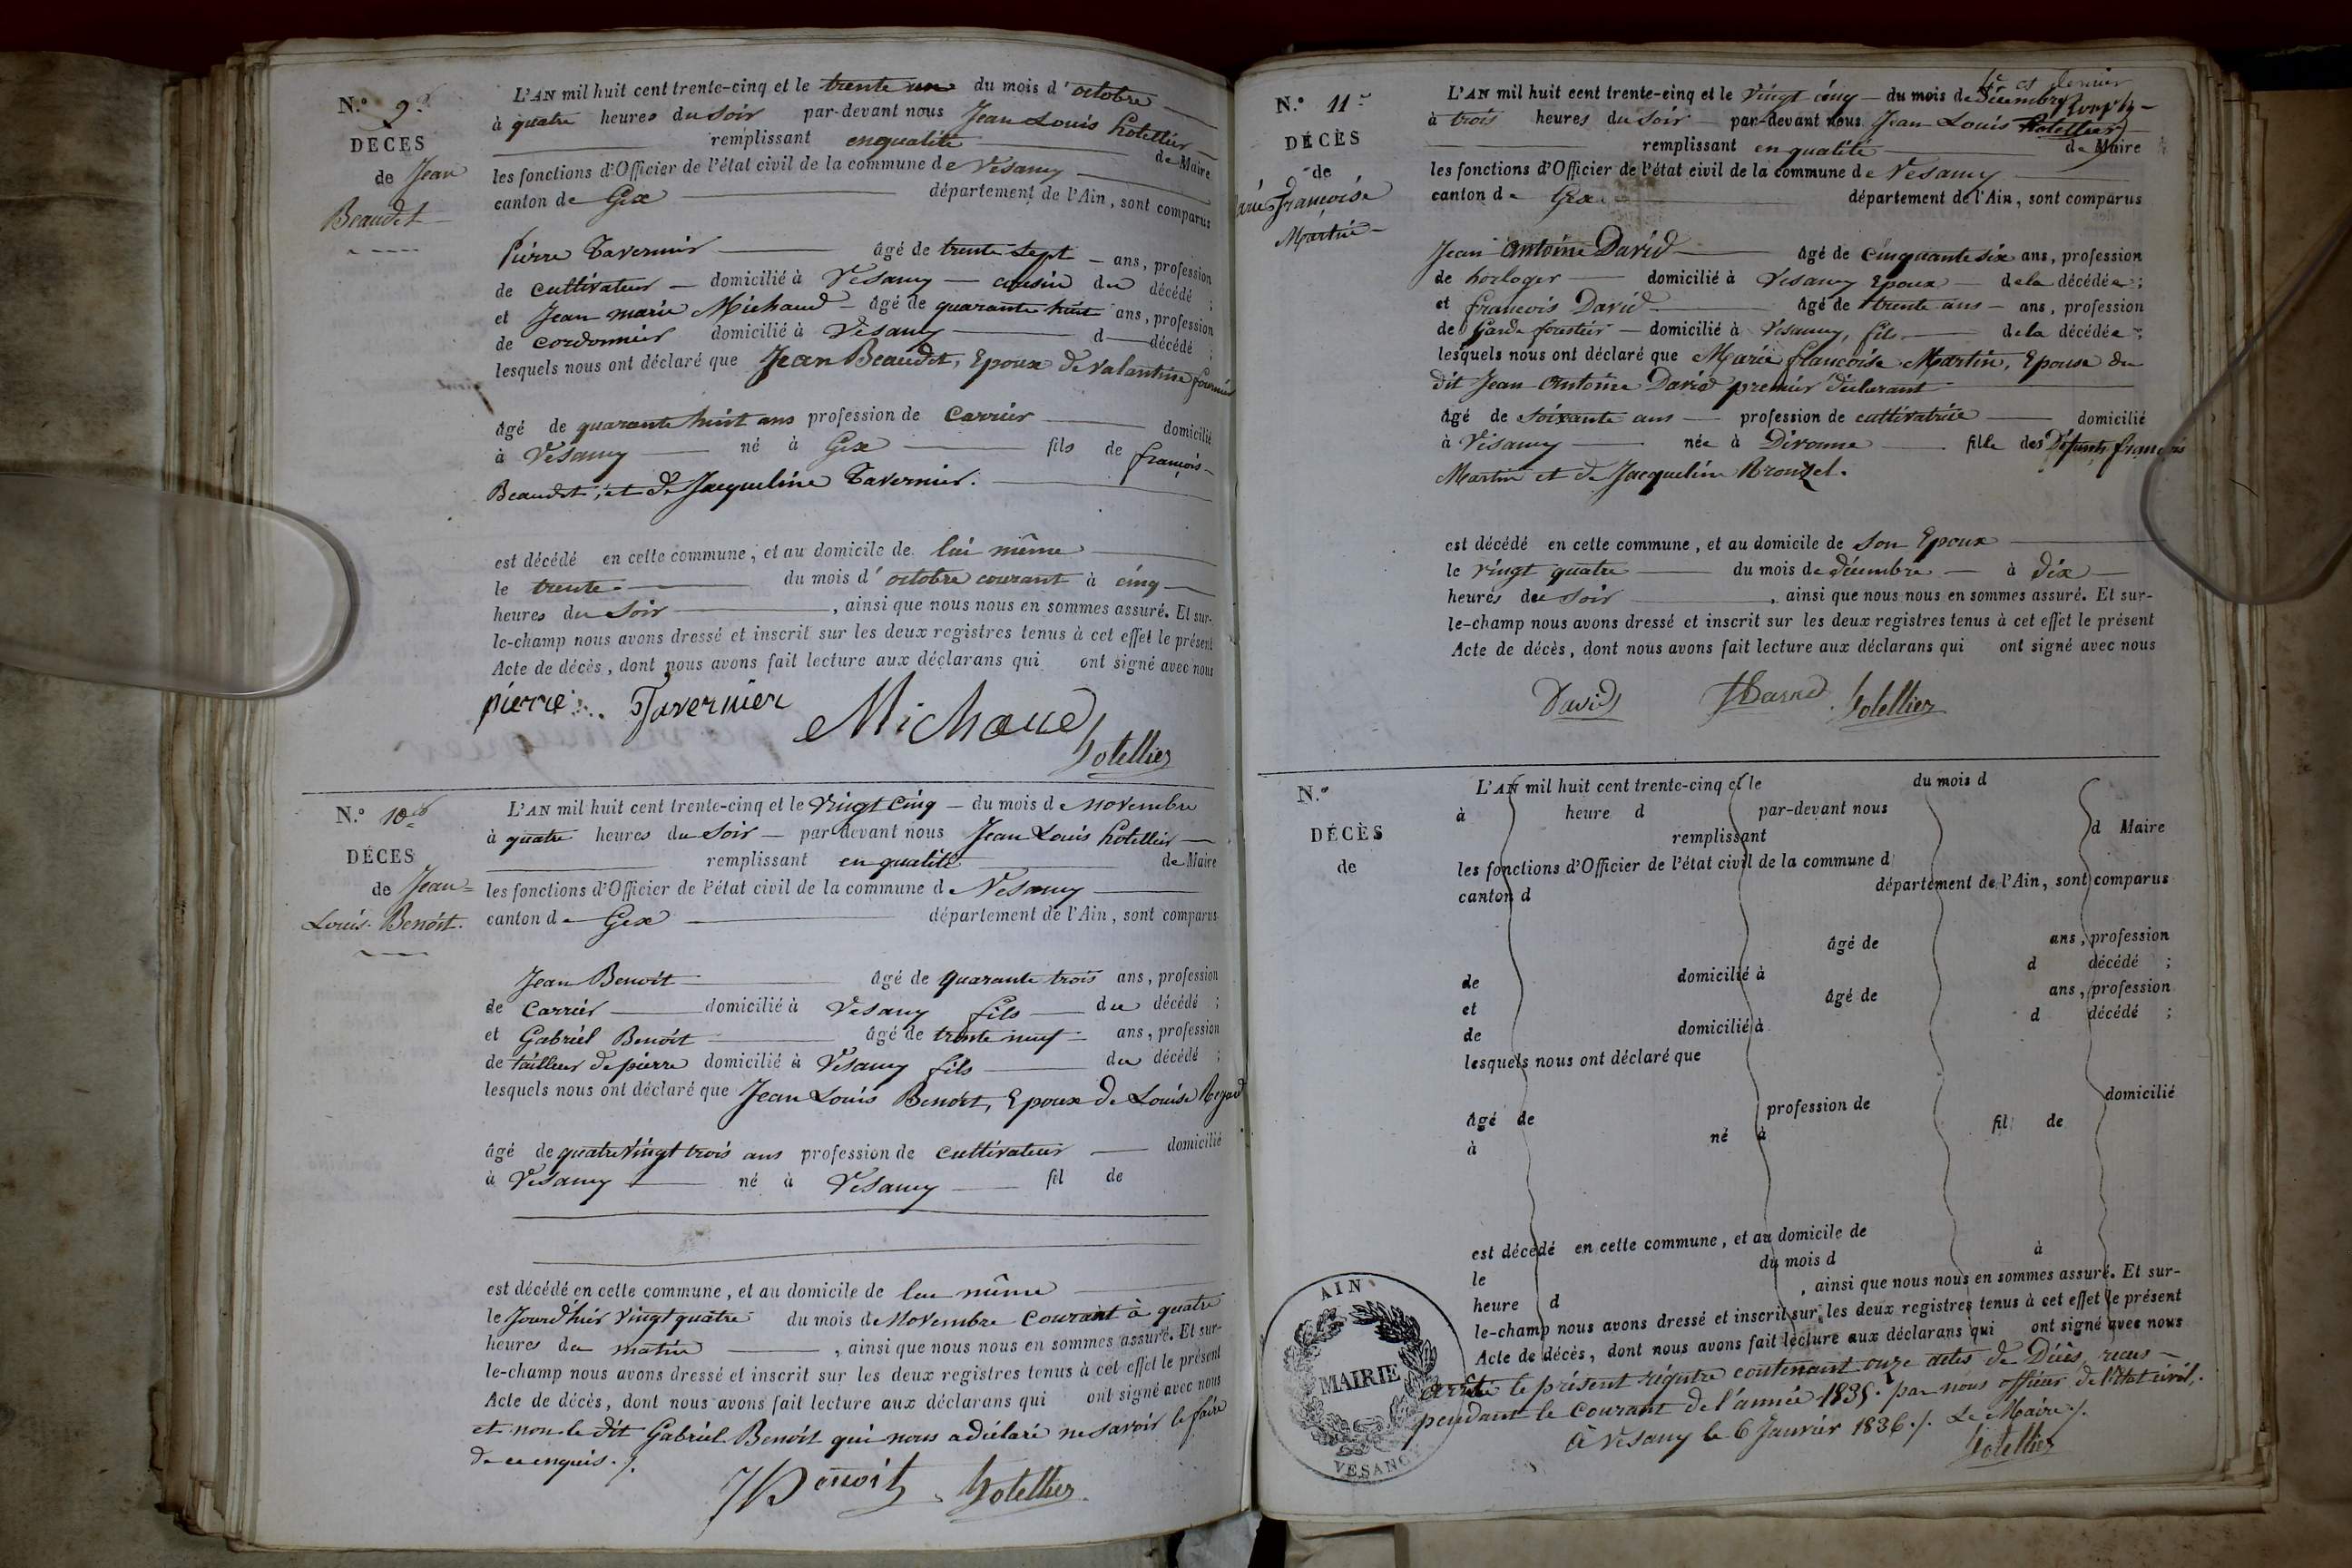 N.o 9.e
DÉCES
de Jean
Beaudet
L'AN mil huit cent trente-cinq et le trente un du mois d'octobre
à quatre heures du soir par-devant nous Jean Louis hotellier
remplissant en qualité de Maire
les fonctions d'Officier de l'état civil de la commune de Vesancy
canton de Gex département de l'Ain, sont comparus
Pierre Tavernier âgé de trente sept ans, profession
de cultivateur domicilié à Vesancy cousin du décédé ;
et Jean marie Michaud âgé de quarante huit ans, profession
de cordonnier domicilié à Vesancy d décédé ;
lesquels nous ont déclaré que Jean Beaudet, Epoux de Valantine fournier
âgé de quarante huit ans profession de Carrier domicilié
à Vesancy né à Gex fils de françois
Beaudet, et de Jacqueline Tavernier.
est décédé en cette commune, et au domicile de lui même
le trente du mois d'octobre courant à cinq
heures du Soir , ainsi que nous nous en sommes assuré. Et sur-
le-champ nous avons dressé et inscrit sur les deux registres tenus à cet effet le présent
Acte de décès, dont nous avons fait lecture aux déclarans qui ont signé avec nous
pierre Tavernier Michaud
hotellier
N.o 10.e
DÉCES
de Jean=
Louis Benoit.
L'AN mil huit cent trente-cinq et le Vingt Cinq du mois de Novembre
à quatre heures du Soir par-devant nous Jean Louis hotellier
remplissant en qualité de Maire
les fonctions d'Officier de l'état civil de la commune de Vesancy
canton de Gex département de l'Ain, sont comparus
Jean Benoit âgé de quarante trois ans, profession
de Carrier domicilié à Vesancy fils du décédé ;
et Gabriel Benoit âgé de trente neuf ans, profession
de tailleur de pierre domicilié à Vesancy fils du décédé ;
lesquels nous ont déclaré que Jean Louis Benoit, Epoux de Louise Regard
âgé de quatre Vingt trois ans profession de Cultivateur domicilié
à Vesancy né à Vesancy fil de
est décédé en cette commune, et au domicile de lui même
le Jourd'hier Vingt quatre du mois de Novembre Courant à quatre
heures du matin , ainsi que nous nous en sommes assuré. Et sur-
le-champ nous avons dressé et inscrit sur les deux registres tenus à cet effet le présent
Acte de décès, dont nous avons fait lecture aux déclarans qui ont signé avec nous
et non le dit Gabriel Benoit qui nous a déclaré ne savoir le faire
de ce enquis ./.
JBenoit hotellier
N.o 11.e
DÉCÈS
de
Marie françoise
Martin
L'AN mil huit cent trente-cinq et le Vingt cinq du mois de Décembre
à trois heures du Soir par-devant nous Jean Louis hotellier
remplissant en qualité de Maire
les fonctions d'Officier de l'état civil de la commune de Vesancy
canton de Gex département de l'Ain, sont comparus
Jean Antoine David âgé de cinquante six ans, profession
de horloger domicilié à Vesancy Epoux de la décédée ;
et francois David âgé de trente ans ans, profession
de Garde forestier domicilié à Vesancy, fils de la décédée ;
lesquels nous ont déclaré que Marie francoise Martin, Epouse du
dit Jean Antoine David premier déclarant
âgé de soixante ans profession de cultivatrice domicilié
à Vesancy née à Divonne fille des Défunts françois
Martin et de Jacqueline Rrouzel.
est décédé en cette commune, et au domicile de son Epoux
le vingt quatre du mois de décembre à dix
heures du soir , ainsi que nous nous en sommes assuré. Et sur-
le-champ nous avons dressé et inscrit sur les deux registres tenus à cet effet le présent
Acte de décès, dont nous avons fait lecture aux déclarans qui ont signé avec nous
David hotellier
N.o
DÉCÈS
de
L'AN mil huit cent trente-cinq et le du mois d
à heure d par-devant nous
remplissant d Maire
les fonctions d'Officier de l'état civil de la commune d
canton d département de l'Ain, sont comparus
âgé de ans, profession
de domicilié à d décédé ;
et âgé de ans, profession
de domicilié à d décédé ;
lesquels nous ont déclaré que
âgé de profession de domicilié
à né à fil de
est décédé en cette commune, et au domicile de
le du mois d à
heure d , ainsi que nous nous en sommes assuré. Et sur-
le-champ nous avons dressé et inscrit sur les deux registres tenus à cet effet le présent
Acte de décès, dont nous avons fait lecture aux déclarans qui ont signé avec nous
arrêté le présent régistre contenant onze actes de Décès, recus
pendant le Courant de l'année 1835. par nous officier de l'état civil.
à Vesancy le 6 Janvier 1836 ./. Le Maire ./.
hotellier
AIN
MAIRIE
VESANC